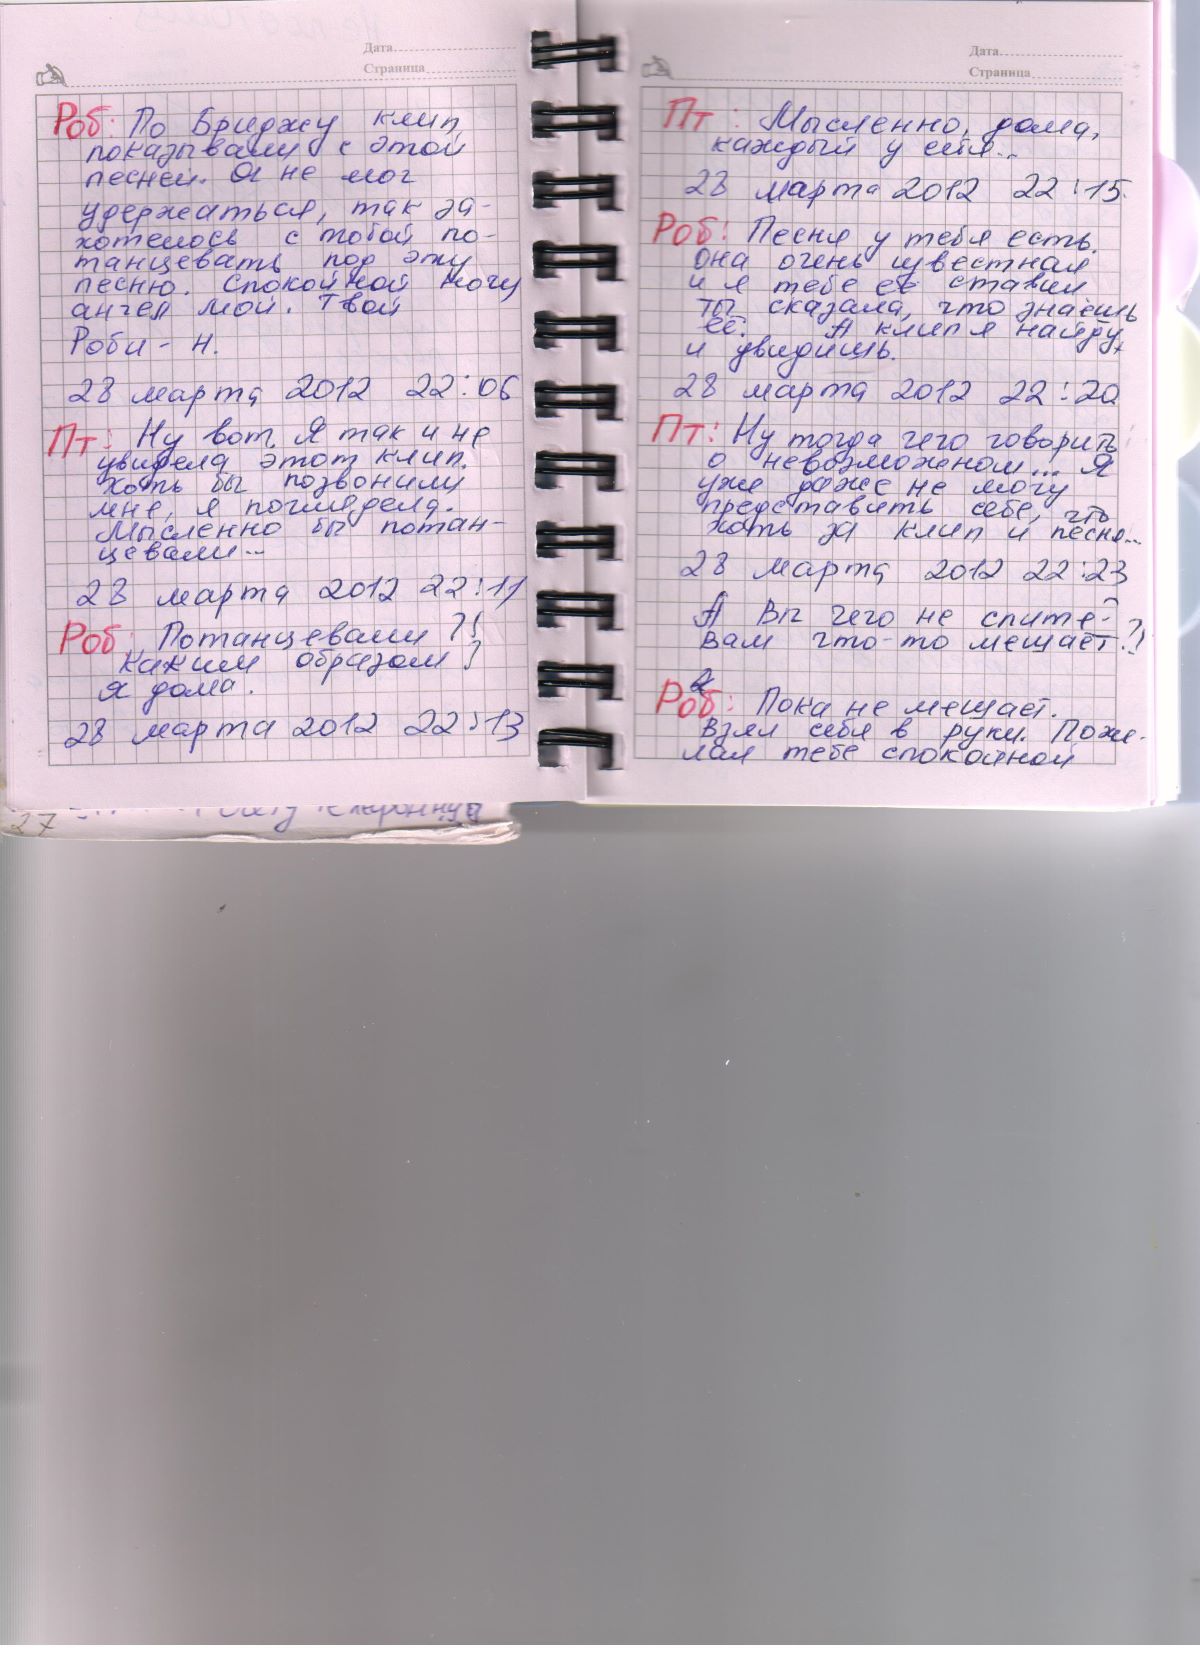 Дата
Страница
Роб: По Бриджу клип
показывали с этой
песней. Я не мог
удержаться, так за-
хотелось с тобой по-
танцевать под эту
песню. Спокойной ночи
ангел мой. Твой
Роби - Н.
28 марта 2012 22:06
Пт: Ну вот. Я так и не
увидела этот клип.
Хоть бы позвонили
мне, я поглядела.
Мысленно бы потан-
цевали...
28 марта 2012 22:11
Роб: Потанцевали?!
Каким образом?
Я дома.
28 марта 2012 22:13
27
Дата
Страница
Пт: Мысленно, дома,
каждый у себя...
28 марта 2012 22:15
Роб: Песня у тебя есть.
Она очень известная
и я тебе её ставил
ты сказала, что знаешь
её. А клип я найду,
и увидишь.
28 марта 2012 22:20
Пт: Ну тогда чего говорить
о невозможном... Я
уже даже не могу
представить себе, что
хоть за клип и песня...
28 марта 2012 22:23
А Вы чего не спите-?
Вам что-то мешает?!
Роб: Пока не мешает.
Взял себя в руки. Поже-
лал тебе спокойной